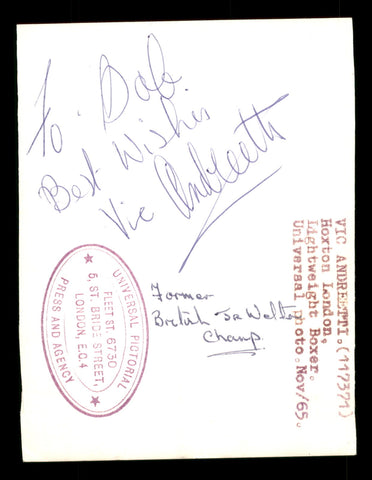 To. Bob.
Best Wishes
Vic Andreetti
Former
British Jr Welter
Champ.
UNIVERSAL PICTORIAL
FLEET ST. 6730
5, ST. BRIDE STREET,
LONDON, E.C.4
PRESS AND AGENCY
VIC ANDREETTI.(117371)
Hoxton London.
Lightweight Boxer.
Universal photo.Nov/65.